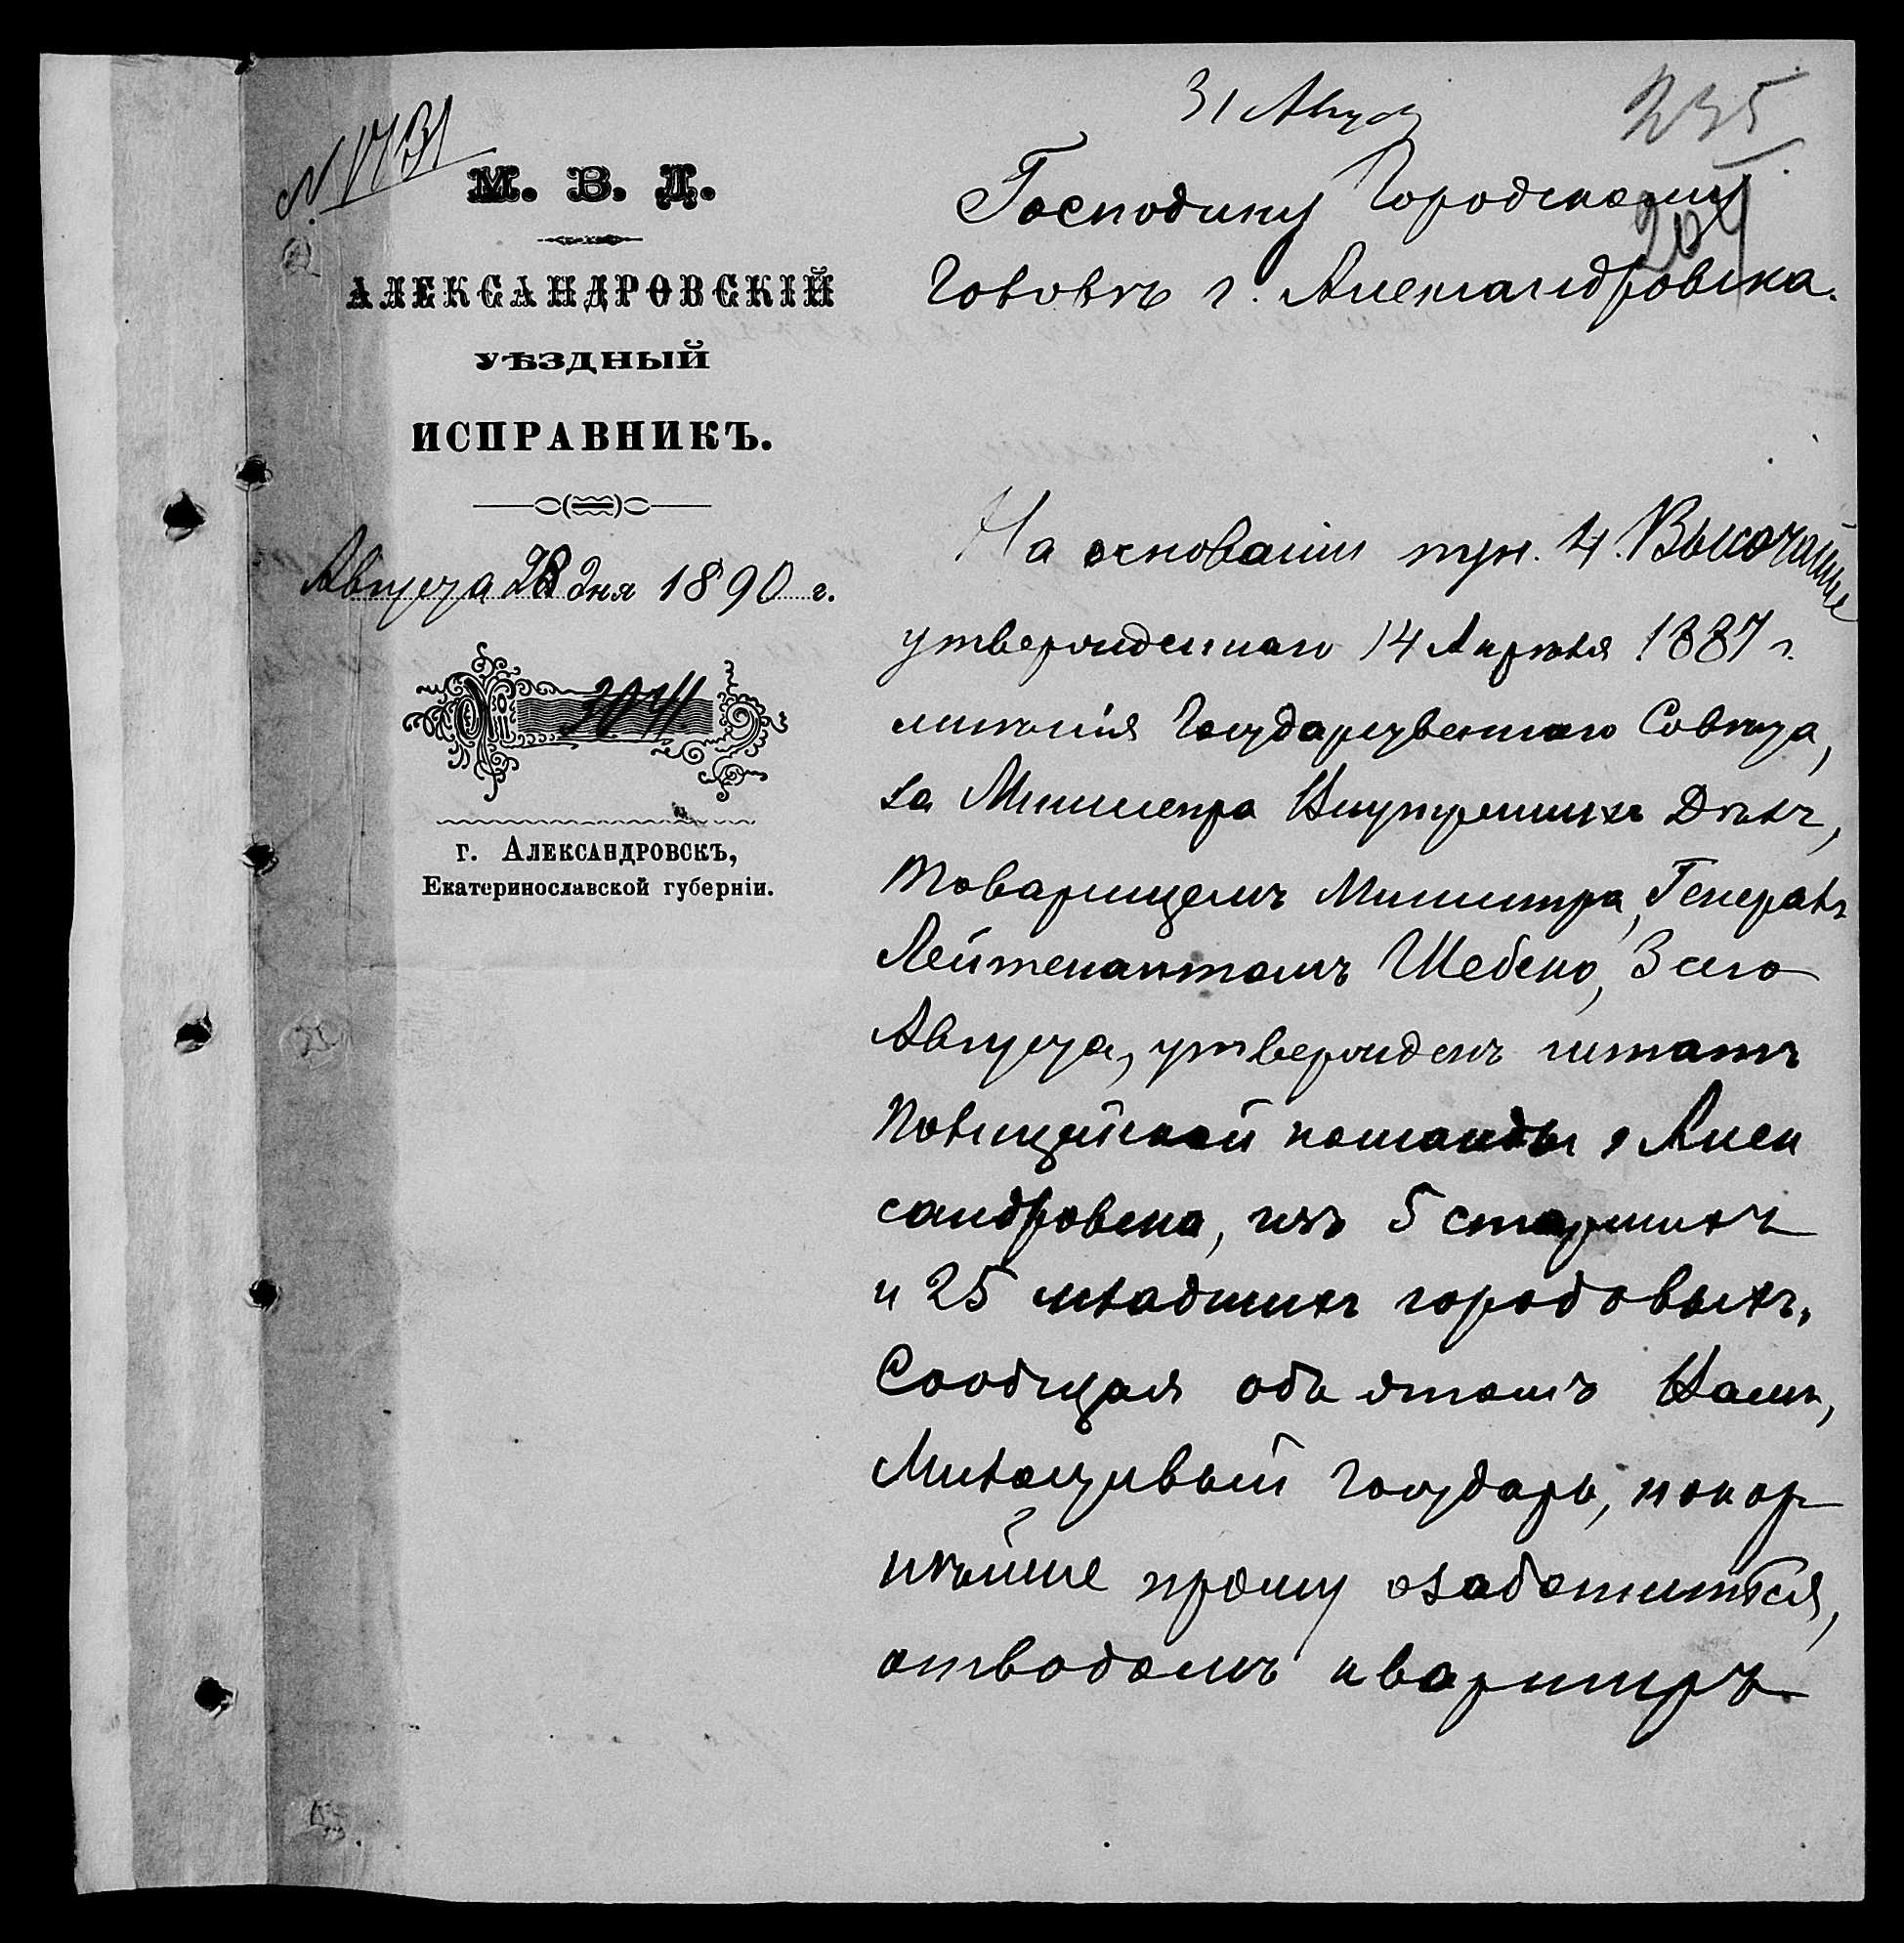 31 Авгус
235
204
N. 1731
М. В. Д.
АЛЕКСАНДРОВСКІЙ
УѢЗДНЫЙ
ИСПРАВНИКЪ.
Августа 28 дня 1890 г.
№ 3041
г. Александровскъ,
Екатеринославской губерніи.
Господину Городскому
Головѣ г. Александровска.
На основаніи пун. 4. Высочайше
утвержденнаго 14 Апрѣля 1887 г.
мнѣнія Государственнаго Совѣта,
за Министра Внутреннихъ Дѣлъ,
Товарищемъ Министра, Генералъ
Лейтенантомъ Шебеко, 3 сего
Августа, утвержденъ штатъ
Полицейской команды г Алек
сандровска, изъ 5 старшихъ
и 25 младшихъ городовыхъ.
Сообщая объ этомъ Вамъ,
Милостивый Государь, покор
нѣйше прошу озаботиться,
отводомъ квартиръ